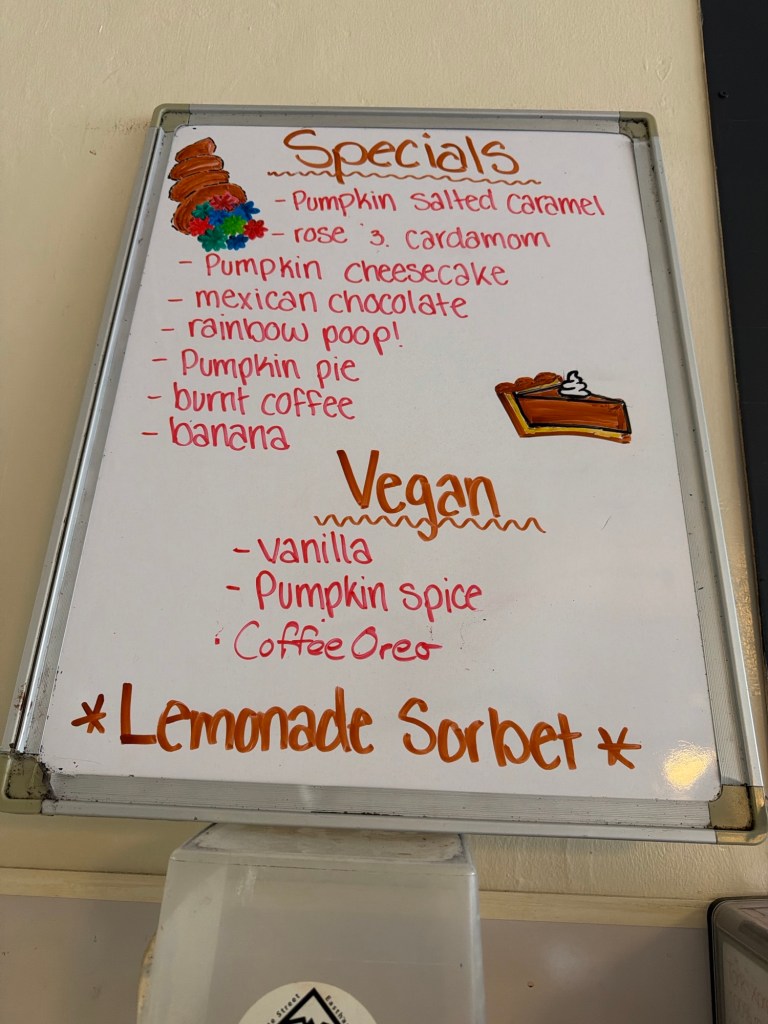 Specials
- Pumpkin salted caramel
- rose 3. cardamom
- Pumpkin cheesecake
- mexican chocolate
- rainbow poop!
- Pumpkin pie
- burnt coffee
- banana
Vegan
- vanilla
- Pumpkin spice
· Coffee Oreo
* Lemonade Sorbet *
Street